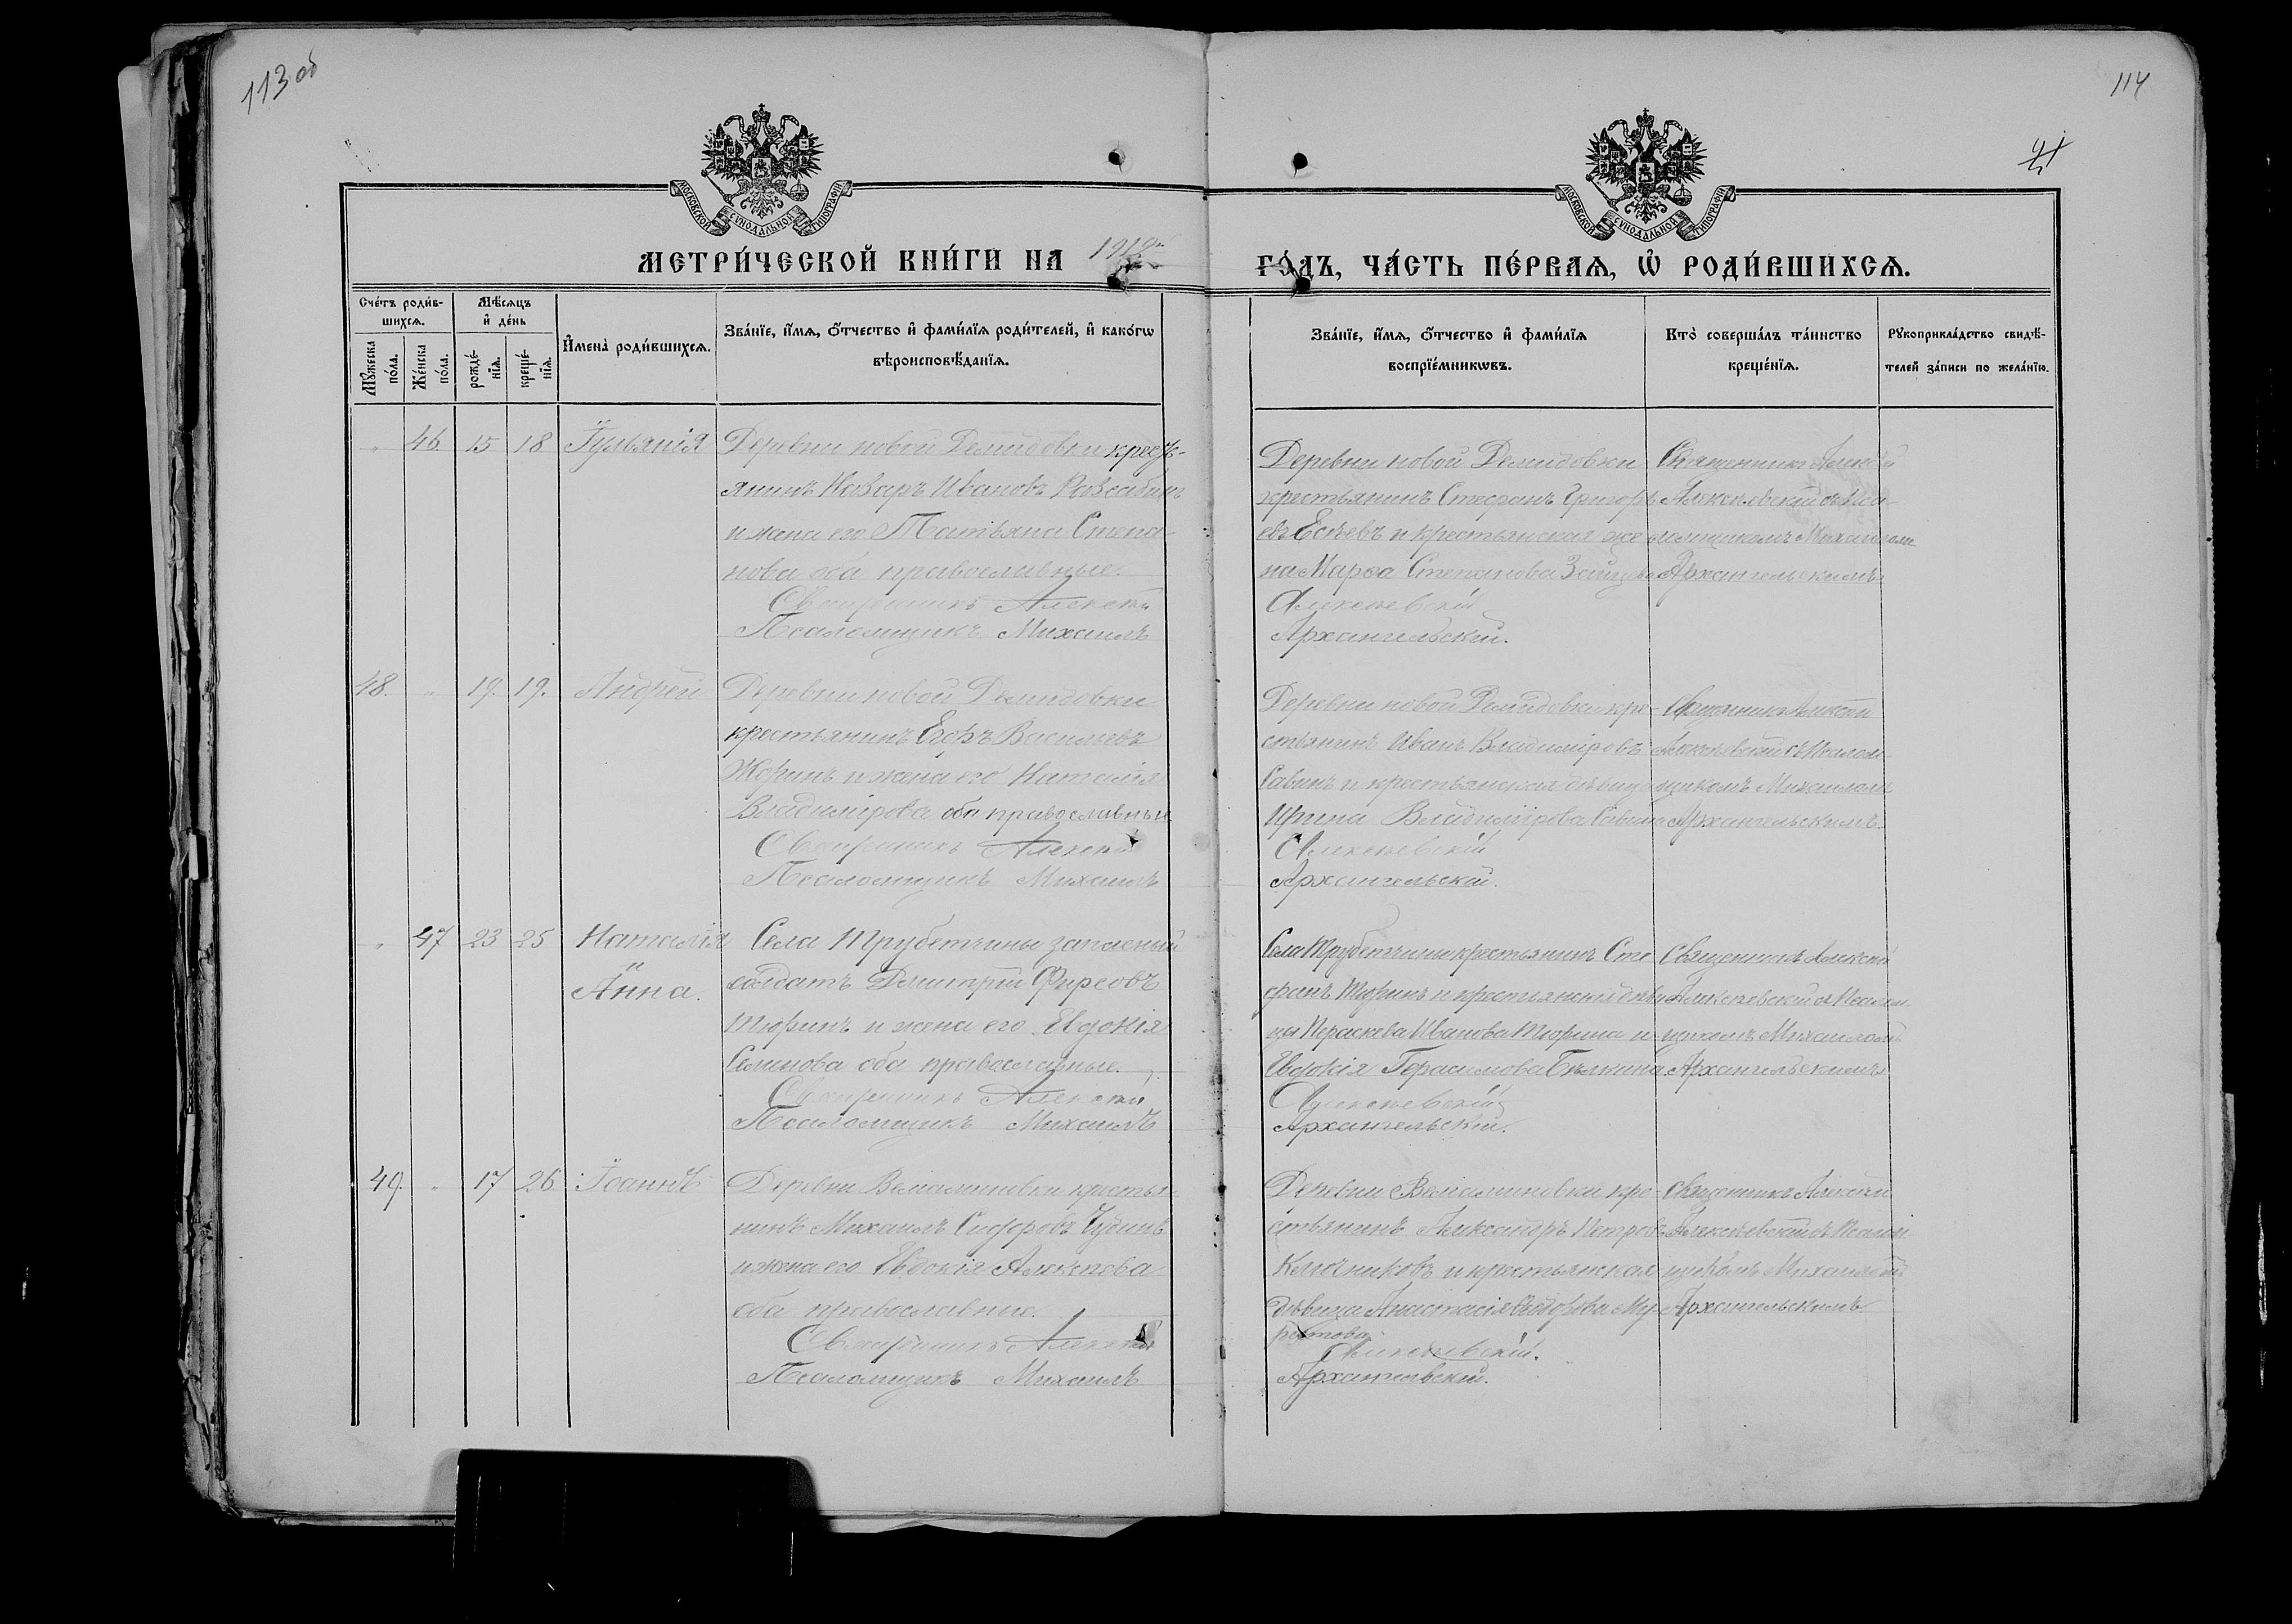 113 об
114
МОСКОВСКОЙ СУНОДАЛЬНОЙ ТИПОГРАФІИ
МОСКОВСКОЙ СУНОДАЛЬНОЙ ТИПОГРАФІИ
МЕТРИ́ЧЕСКОЙ КНИ́ГИ НА 1912
ГО́ДЪ, ЧА́СТЬ ПЕ́РВАѦ, Ѡ҆ РОДИ́ВШИХСѦ.
Сче́тъ роди́в-
шихсѧ.
Мѣ́сѧцъ
и҆ де́нь
И҆мена̀ роди́вшихсѧ.
Зва́нїе, и҆́мѧ, ѻ҆́тчество и҆ фами́лїѧ роди́телей, и҆ како́гѡ
вѣроисповѣ́данїѧ.
Мꙋ́жеска
по́ла.
Же́нска
по́ла.
рожде́-
нїѧ.
креще́-
нїѧ.
Зва́нїе, и҆́мѧ, ѻ҆́тчество и҆ фами́лїѧ
воспрїе́мникѡвъ.
Кто̀ соверша́лъ та́инство
креще́нїѧ.
Рꙋкоприкла́дство свидѣ́-
телей за́писи по жела́нїю.
" 46. 15 18 Іульянія
Деревни новой Демидовки кресть-
янинъ Назаръ Ивановъ
и жена его Татьяна Степа-
нова оба православные.
Священникъ Алексѣй
Псаломщикъ Михаилъ
Деревни новой Демидовки
крестьянинъ Стефанъ Григорь-
евъ Есѣевъ и крестьянская же-
на Марѳа Степанова Зайцева
Алексѣевскій
Архангельскій.
Священникъ Алексѣй
Алексѣевскій съ Пса-
ломщикомъ Михаиломъ
Архангельскимъ
48. " 19. 19. Андрей
Деревни новой Демидовки
крестьянинъ Егоръ Васильевъ
и жена его Наталія
Владимірова оба православные
Священникъ Алексѣй
Псаломщикъ Михаилъ
Деревни новой Демидовки кре-
стьянинъ Иванъ Владиміровъ
Савинъ и крестьянская дѣвица
Ирина Владимірова Савина
Алексѣевскій
Архангельскій.
Священникъ Алексѣй
Алексѣевскій съ Псалом-
щикомъ Михаиломъ
Архангельскимъ.
" 47 23 25 Наталія
Анна.
Села Трубетчины запасный
солдатъ Димитрій Фирсовъ
Тюринъ и жена его Евдокія
Семинова оба православные.
Священникъ Алексѣй
Псаломщикъ Михаилъ
Села Трубетчины крестьянинъ Сте-
фанъ Тюринъ и крестьянскія дѣви-
цы Параскева Иванова Тюрина и
Евдокія Герасимова Бѣлкина
Алексѣевскій
Архангельскій.
Священникъ Алексѣй
Алексѣевскій съ Псалом-
щикомъ Михаиломъ
Архангельскимъ
49. " 17 26 Іоаннъ
Деревни Вельаминовки крестья-
нинъ Михаилъ Сидоровъ Чудинъ
и жена его Евдокія Алексѣева
оба православные.
Священникъ Алексѣй
Псаломщикъ Михаилъ
Деревни Вельаминовки кре-
стьянинъ Александръ Петровъ
Ключниковъ и крестьянская
дѣвица Анастасія Ѳеодорова Му-
ратова
Алексѣевскій.
Архангельскій.
Священникъ Алексѣй
Алексѣевскій съ Псалом-
щикомъ Михаиломъ
Архангельскимъ